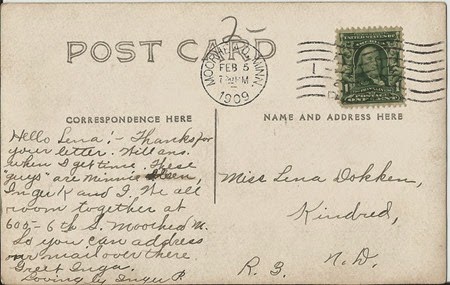 2
POST CARD
MOORHEAD, MINN.
FEB 5
7 PM
1909
1
CORRESPONDENCE HERE
NAME AND ADDRESS HERE
Hello Lena! - Thanks for
your letter. Will ans.
when I get time. These
"guys" are Minnie Olsen,
Inga K and I. We all
room together at
600 - 6th S. Moorhead M.
So you can address
our mail over there
Greet Inga.
Lovingly Inger P.
Miss Lena Dokken,
Kindred,
R. 3. N.D.